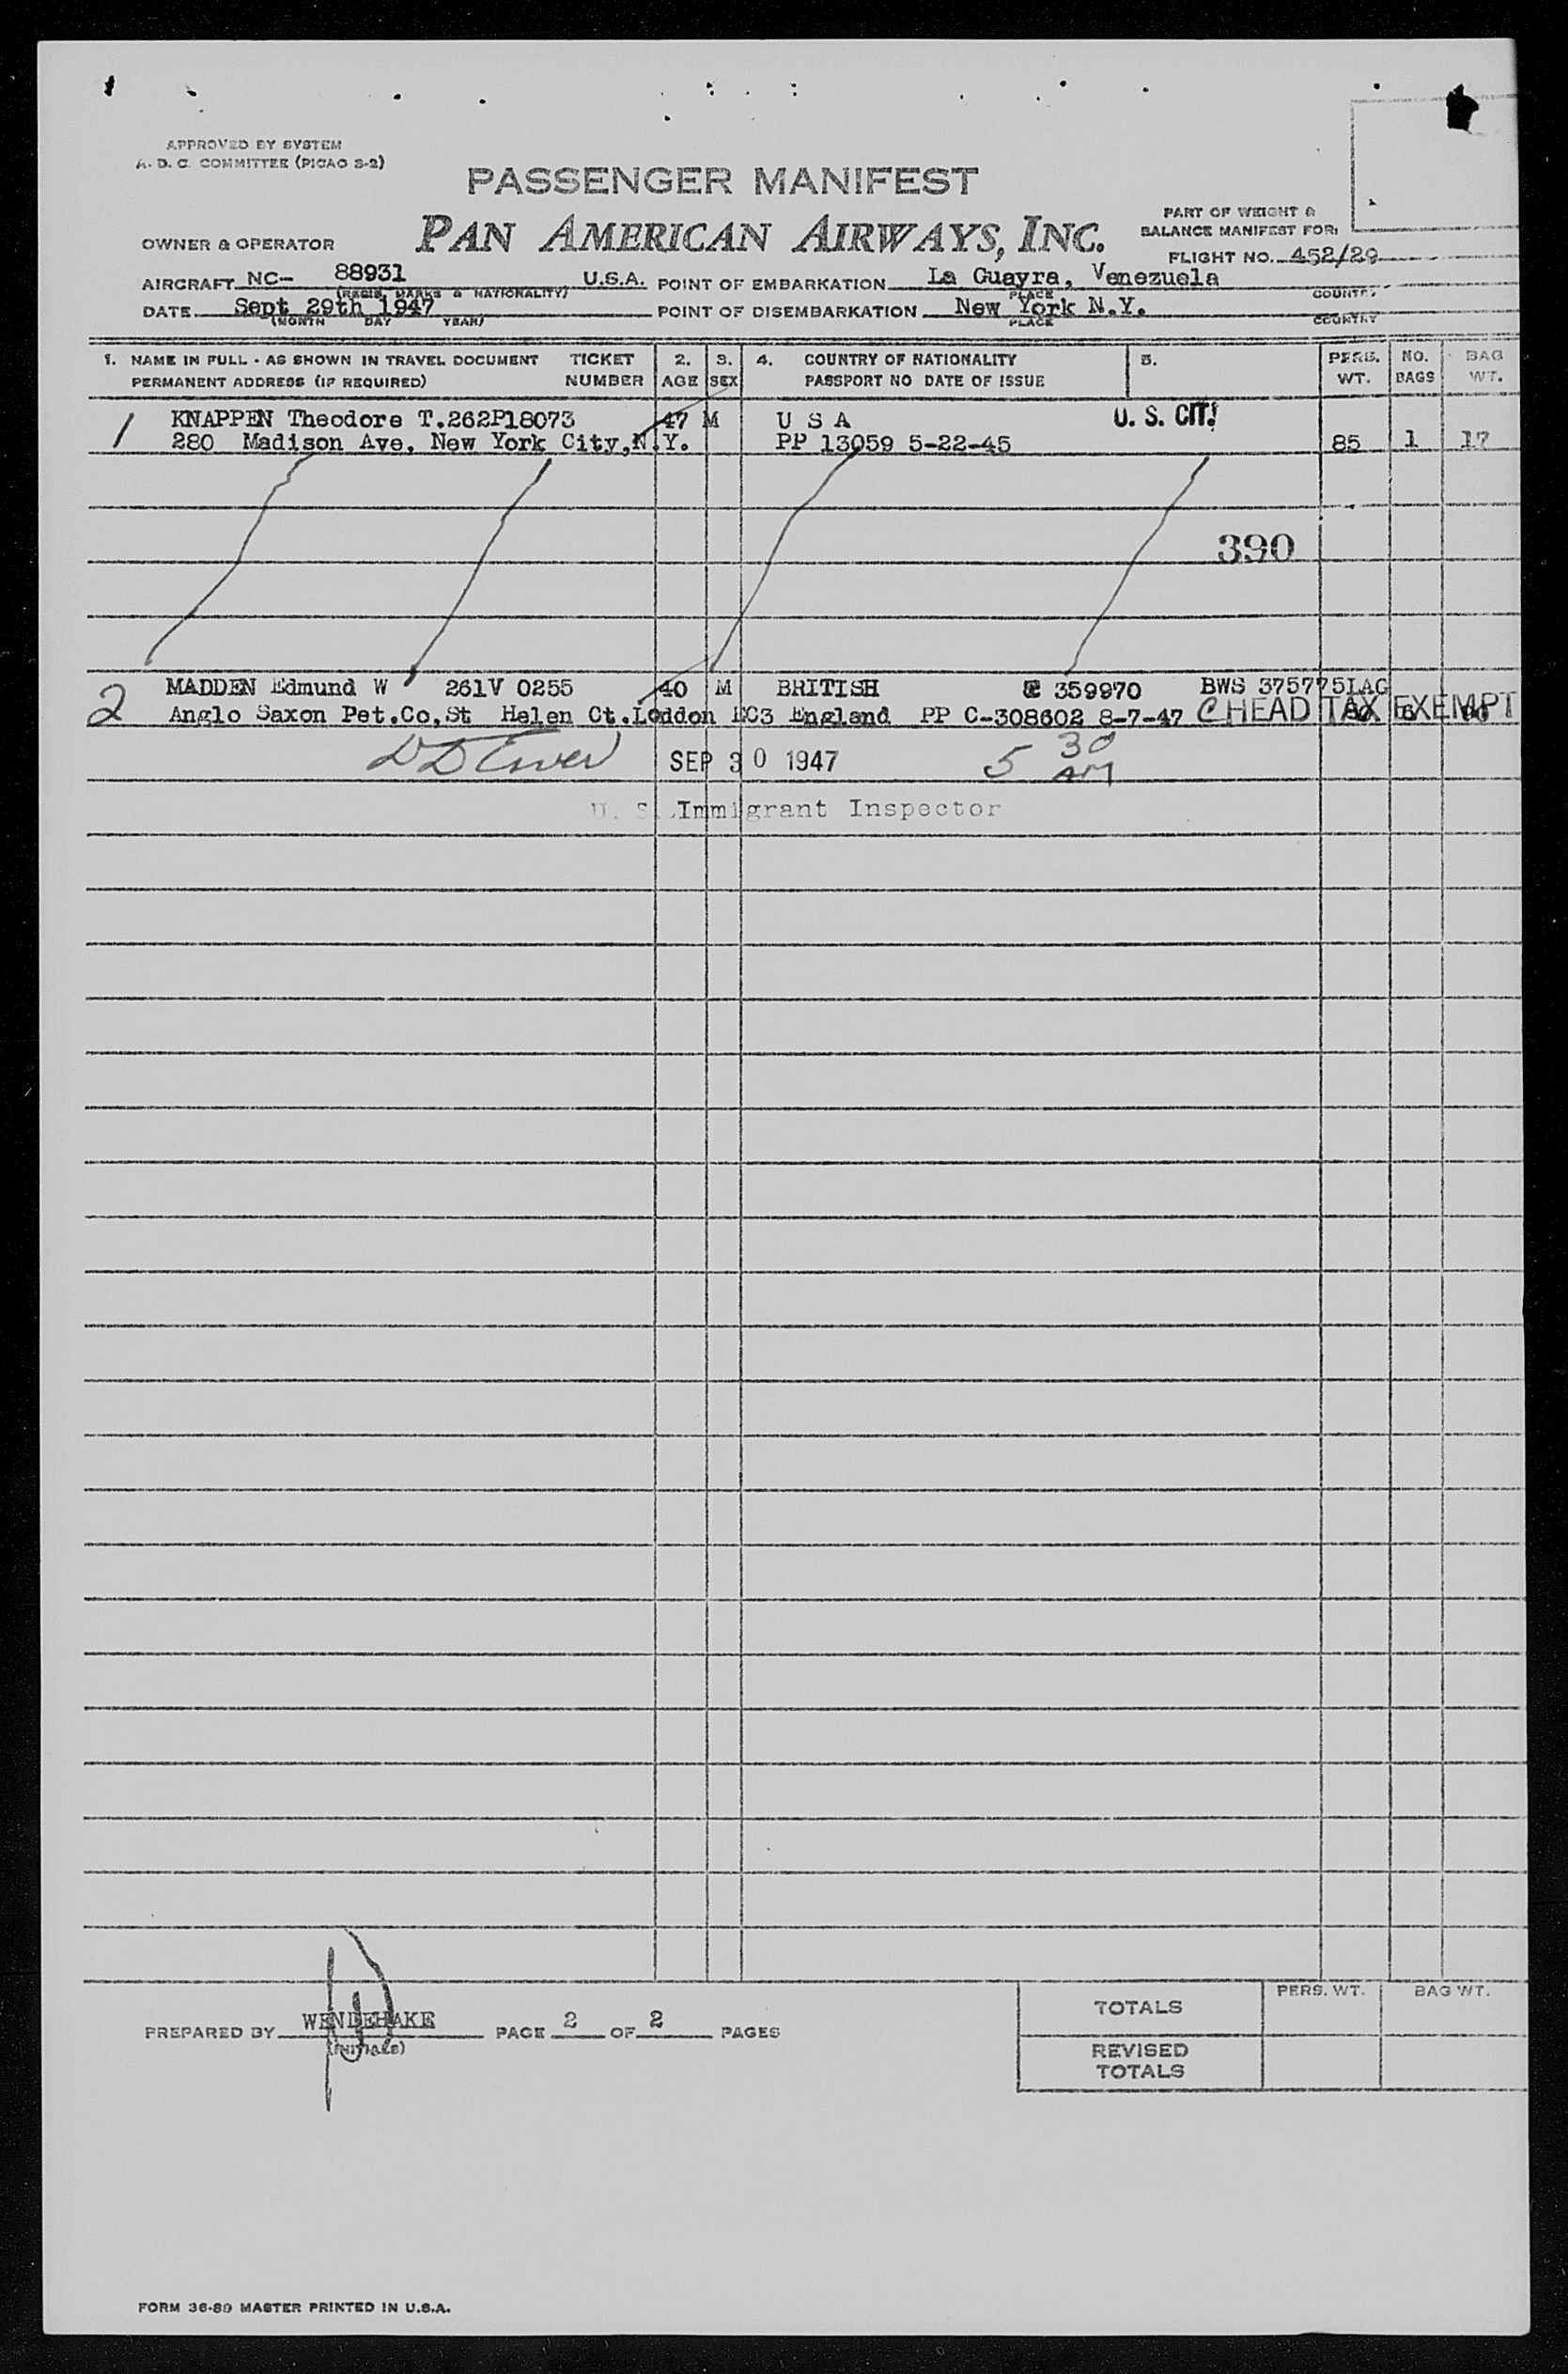 APPROVED BY SYSTEM
A. D. C. COMMITTEE (PICAO S-2)
PASSENGER MANIFEST
PAN AMERICAN AIRWAYS, INC.
PART OF WEIGHT &
BALANCE MANIFEST FOR:
OWNER & OPERATOR
FLIGHT NO. 452/29
AIRCRAFT NC- 88931 U.S.A. POINT OF EMBARKATION La Guayra, Venezuela
(REGIS. MARKS & NATIONALITY) PLACE COUNTRY
DATE Sept 29th 1947 POINT OF DISEMBARKATION New York N.Y.
(MONTH DAY YEAR) PLACE COUNTRY
1. NAME IN FULL - AS SHOWN IN TRAVEL DOCUMENT TICKET 2. 3. 4. COUNTRY OF NATIONALITY 5. PERS. NO. BAG
PERMANENT ADDRESS (IF REQUIRED) NUMBER AGE SEX PASSPORT NO DATE OF ISSUE WT. BAGS WT.
KNAPPEN Theodore T.262P18073 47 M U S A U. S. CIT.
1 280 Madison Ave, New York City,N.Y. PP 13059 5-22-45 85 1 17
390
MADDEN Edmund W 261V 0255 40 M BRITISH 359970 BWS 375775LAG
2 Anglo Saxon Pet.Co,St Helen Ct.Loddon EC3 England PP C-308602 8-7-47 C HEAD TAX EXEMPT
SEP 30 1947 5 30 AM
U. S. Immigrant Inspector
PREPARED BY WENDEHAKE PAGE 2 OF 2 PAGES
(INITIALS)
TOTALS PERS. WT. BAG WT.
REVISED
TOTALS
FORM 36-89 MASTER PRINTED IN U.S.A.